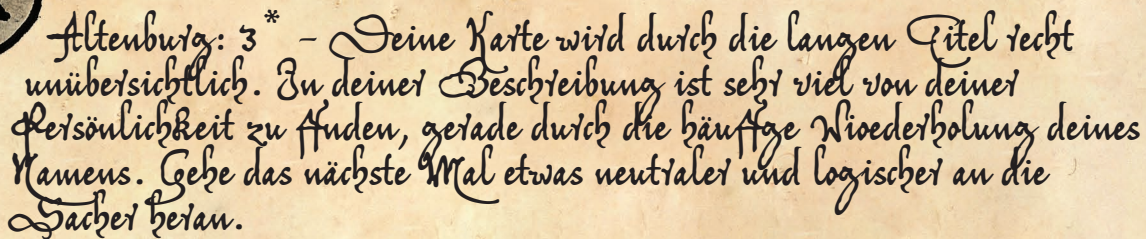 Altenburg: 3* – Deine Karte wird durch die langen Titel recht
unübersichtlich. In deiner Beschreibung ist sehr viel von deiner
Persönlichkeit zu finden, gerade durch die häufige Wioederholung deines
Namens. Gehe das nächste Mal etwas neutraler und logischer an die
Sacher heran.